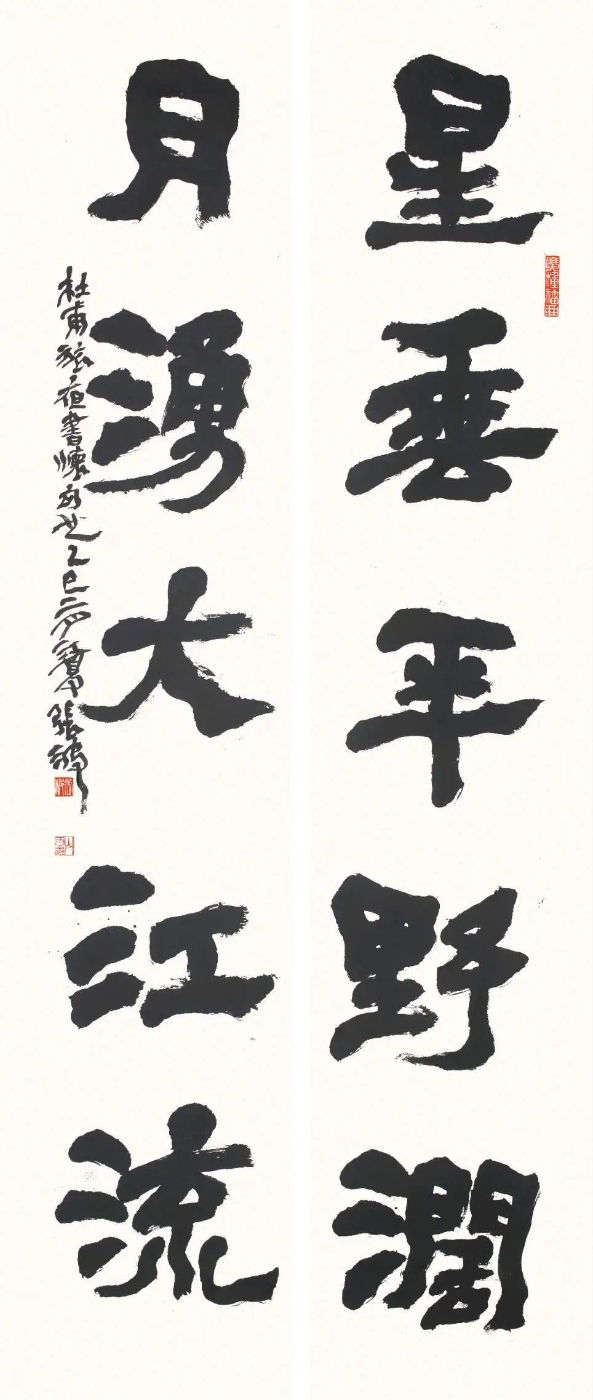 星垂平野濶
月湧大江流
杜甫旅夜書懷句也乙巳張